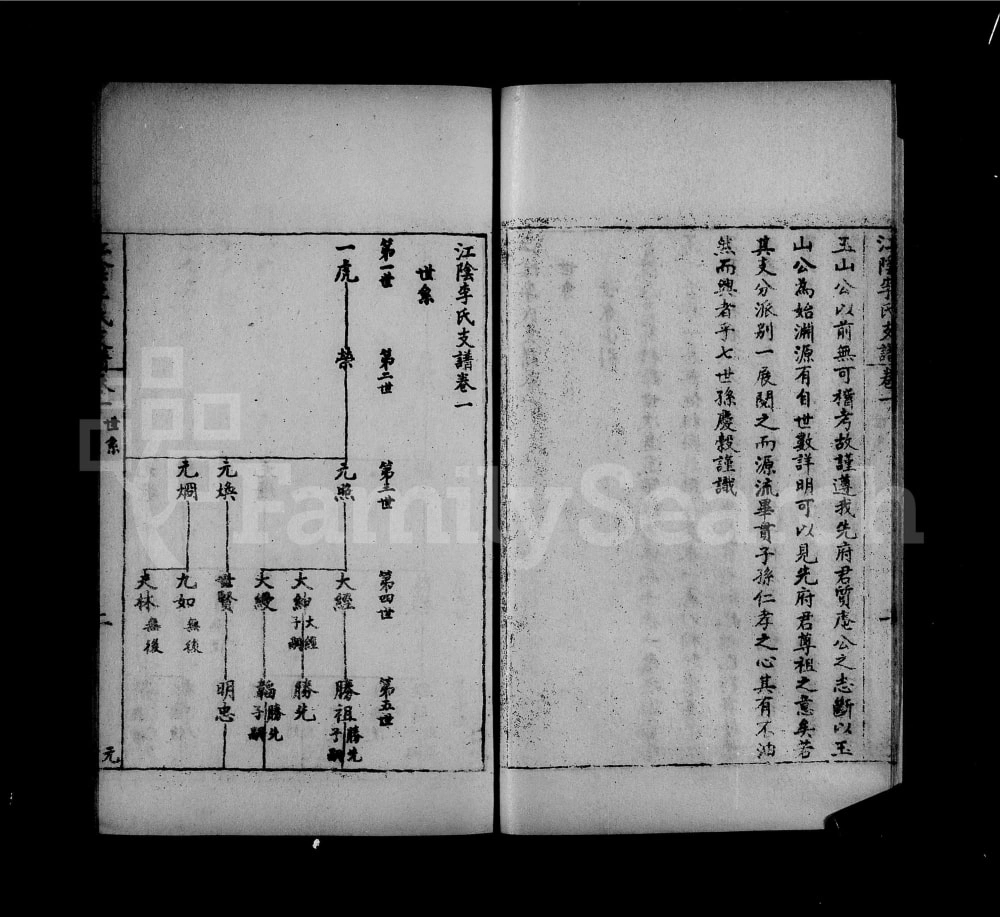 江陰李氏支譜卷一
一
玉山公以前無可稽考故謹遵我先府君質庵公之志斷以玉
山公為始淵源有自世數詳明可以見先府君尊祖之意矣若
其支分派別一展閱之而源流畢貫子孫仁孝之心其有不油
然而興者乎七世孫慶穀謹識
江陰李氏支譜卷一
世系
第一世
第二世
第三世
第四世
第五世
一虎
榮
元照
大經
勝祖 勝先子嗣
大紳 大經子嗣
勝先
大綬
韜 勝先子嗣
元煥
世賢
明忠
元燗
九如 無後
夫林 無後
世系
二
元
FamilySearch